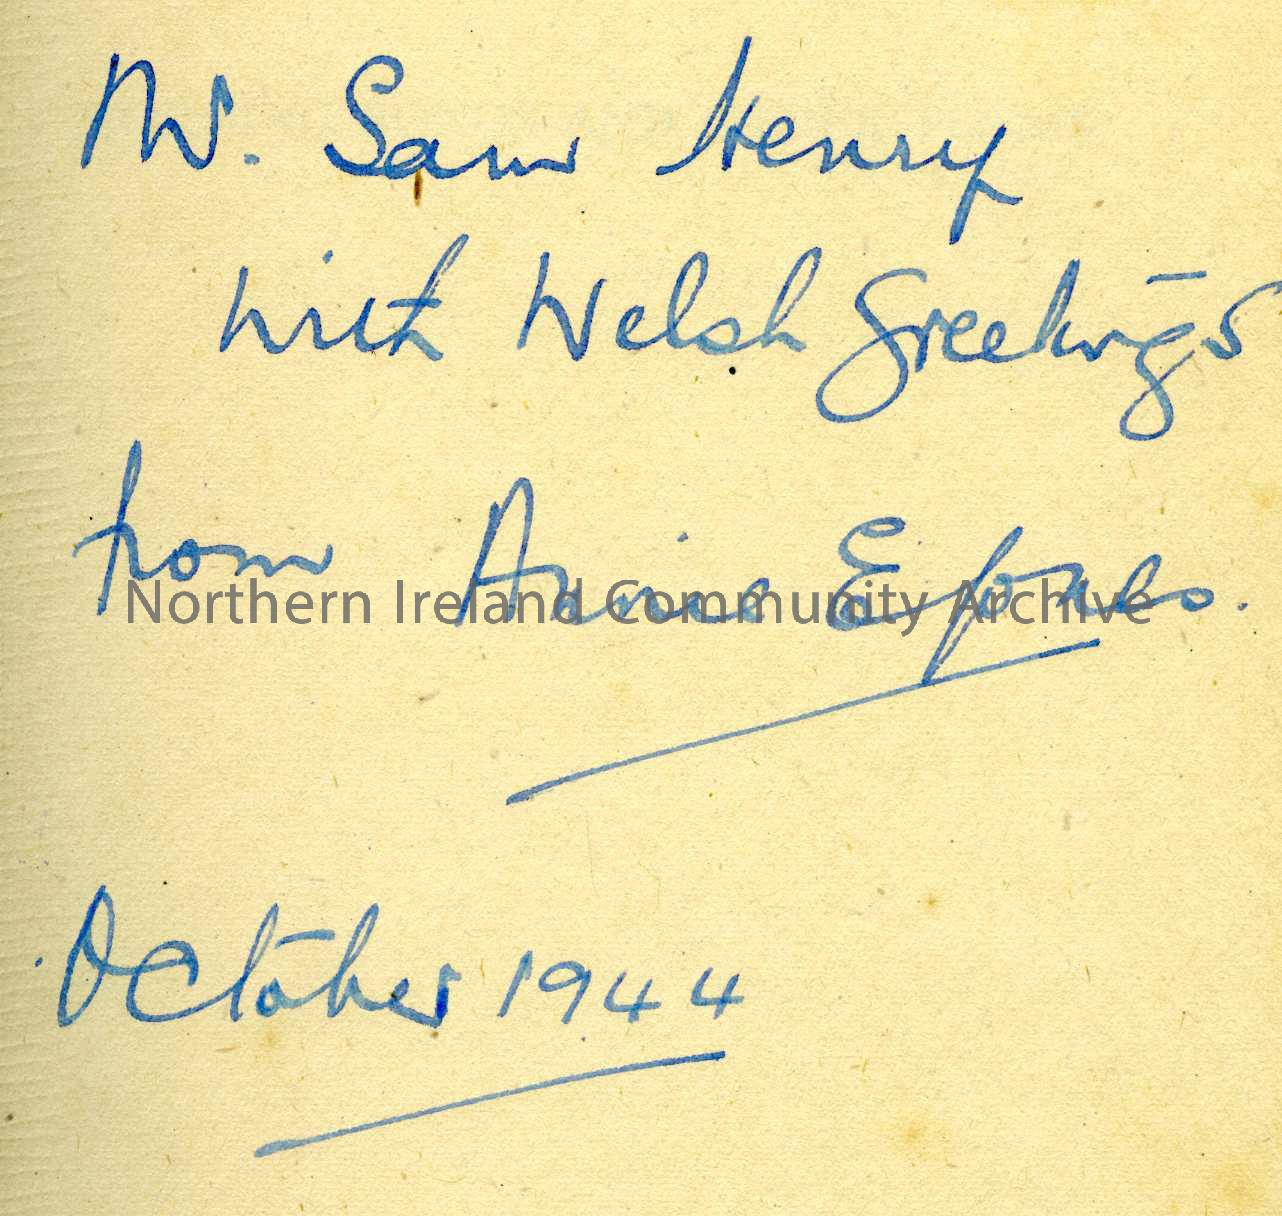 Mr. Sam Henry
with Welsh Greetings
from Annie E Jones.
Northern Ireland Community Archive
October 1944